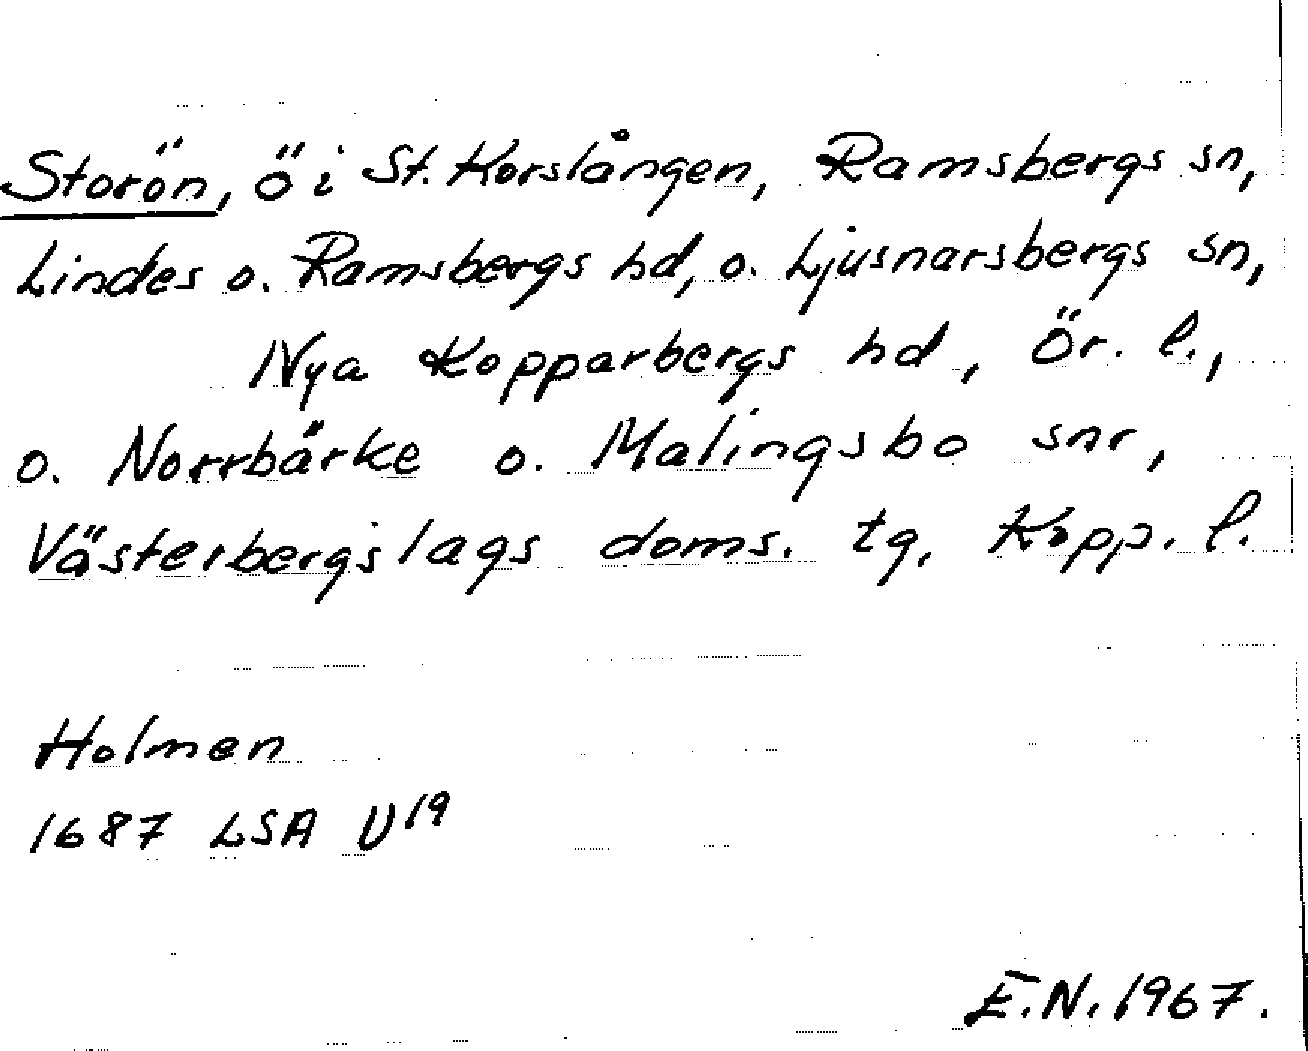 Storön, ö i St. Korslången, Ramsbergs sn,
Lindes o. Ramsbergs hd, o. Ljusnarsbergs sn,
Nya Kopparbergs hd, Ör. l.,
o. Norrbärke o. Malingsbo snr,
Västerbergslags doms. tg. Kopp. l.
Holmen
1687 LSA U19
E.N. 1967.